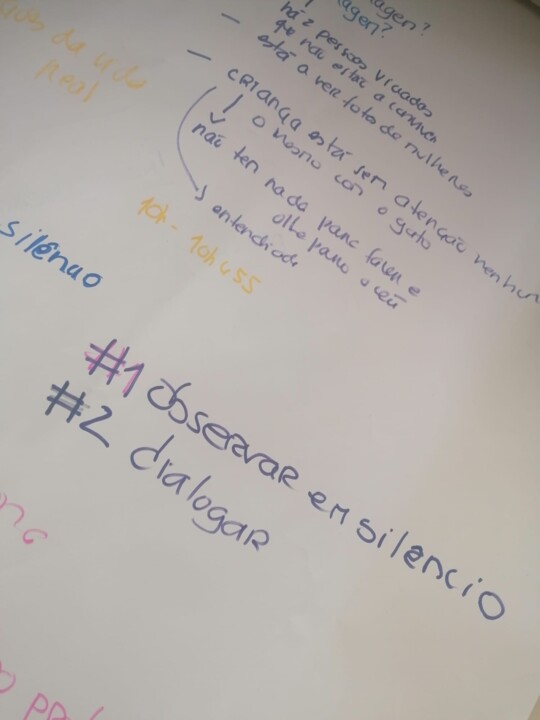 agem?
agem?
— há 2 pessoas viciadas
que não estão a conviver
está a ver fotos de mulheres
— criança está sem atenção nenhum
o mesmo com o gato
não tem nada para fazer e
olha para o céu
entendiada
da vida
Real
10h - 10h455
silêncio
#1 observar em silêncio
#2 dialogar